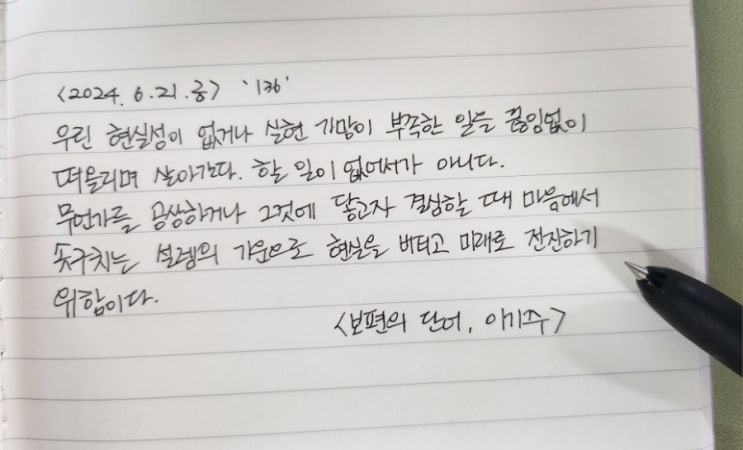 <2024. 6. 21. 금> '136'
우린 현실성이 없거나 실현 가망이 부족한 일을 끊임없이
떠올리며 살아간다. 할 일이 없어서가 아니다.
무언가를 공상하거나 그것에 닿고자 결심할 때 마음에서
솟구치는 설렘의 기운으로 현실을 버티고 미래로 전진하기
위함이다.
<보편의 단어, 이기주>